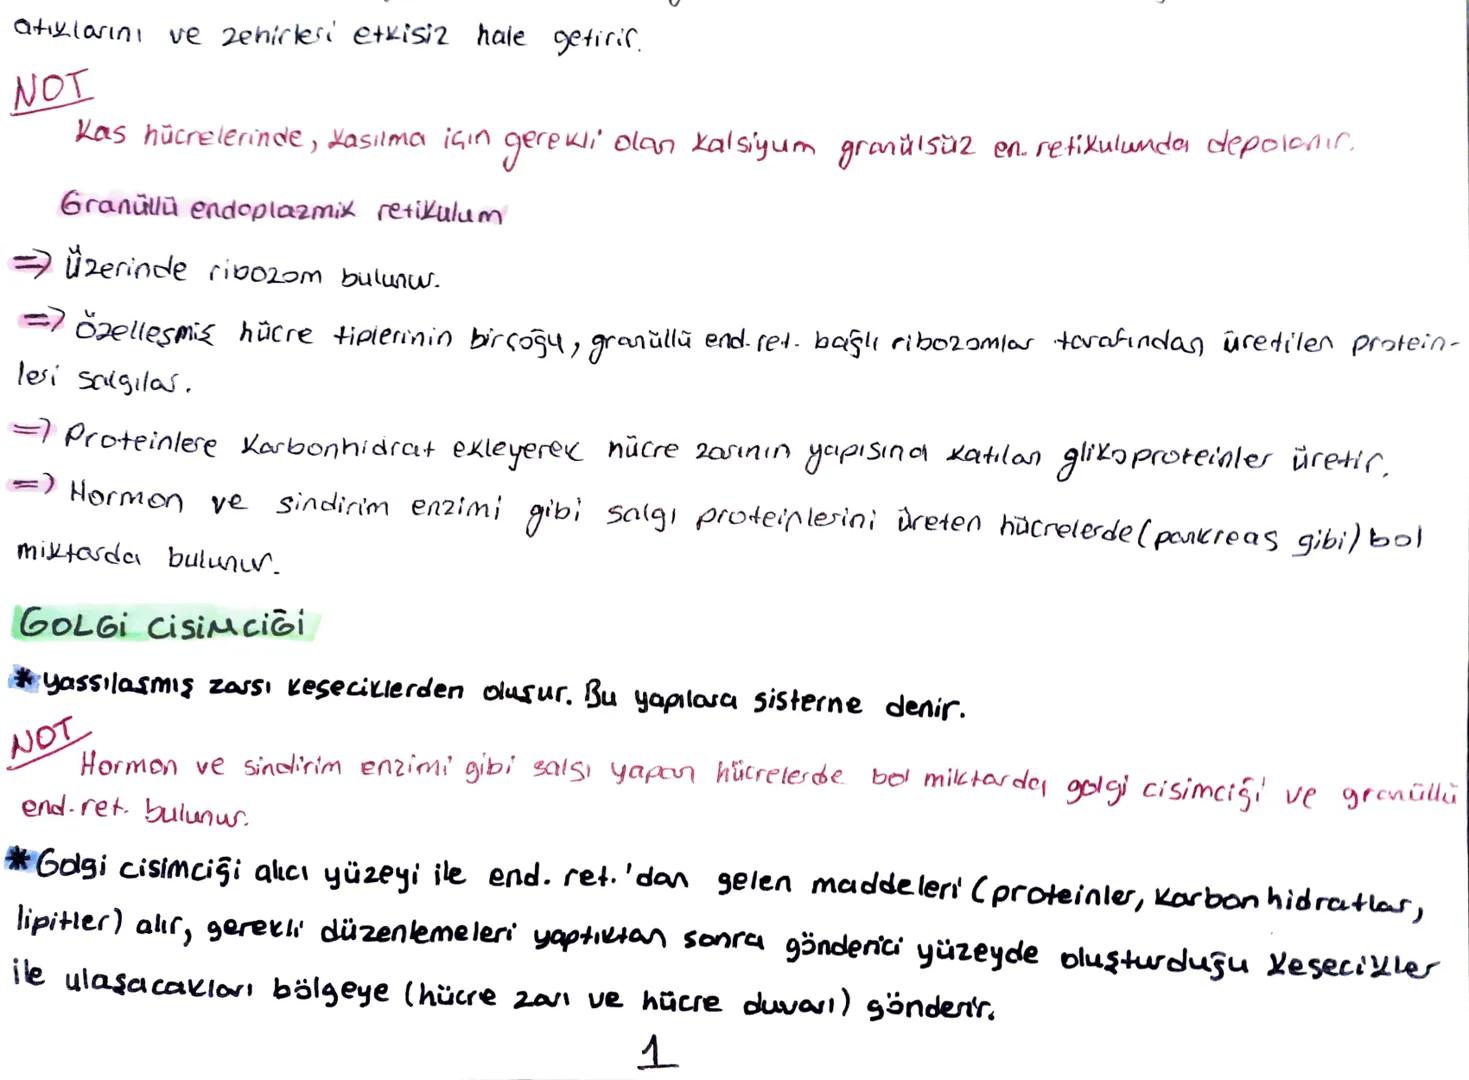 atıklarını ve zehirleri etkisiz hale getirir.
NOT
Kas hücrelerinde, kasılma için gerekli olan kalsiyum granülsüz en. retikulunda depolanır.
Granüllü endoplazmik retikulum
=> Üzerinde ribozom bulunur.
=> Özelleşmiş hücre tiplerinin birçoğu, granüllü end. ret. bağlı ribozomlar tarafından üretilen protein-
leri salgılar.
=> Proteinlere karbonhidrat ekleyerek hücre zarının yapısına katılan glikoproteinler üretir.
=> Hormon ve sindirim enzimi gibi salgı proteinlerini üreten hücrelerde (pankreas gibi) bol
miktarda bulunur.
GOLGİ CİSİMCİĞİ
* yassılaşmış zarsı keseciklerden oluşur. Bu yapılara sisterne denir.
NOT
Hormon ve sindirim enzimi gibi salgı yapan hücrelerde bol miktarda golgi cisimciği ve granüllü
end. ret. bulunur.
* Golgi cisimciği alıcı yüzeyi ile end. ret.'dan gelen maddeleri (proteinler, karbonhidratlar,
lipitler) alır, gerekli düzenlemeleri yaptıktan sonra gönderici yüzeyde oluşturduğu kesecikler
ile ulaşacakları bölgeye (hücre zarı ve hücre duvarı) gönderir.
1